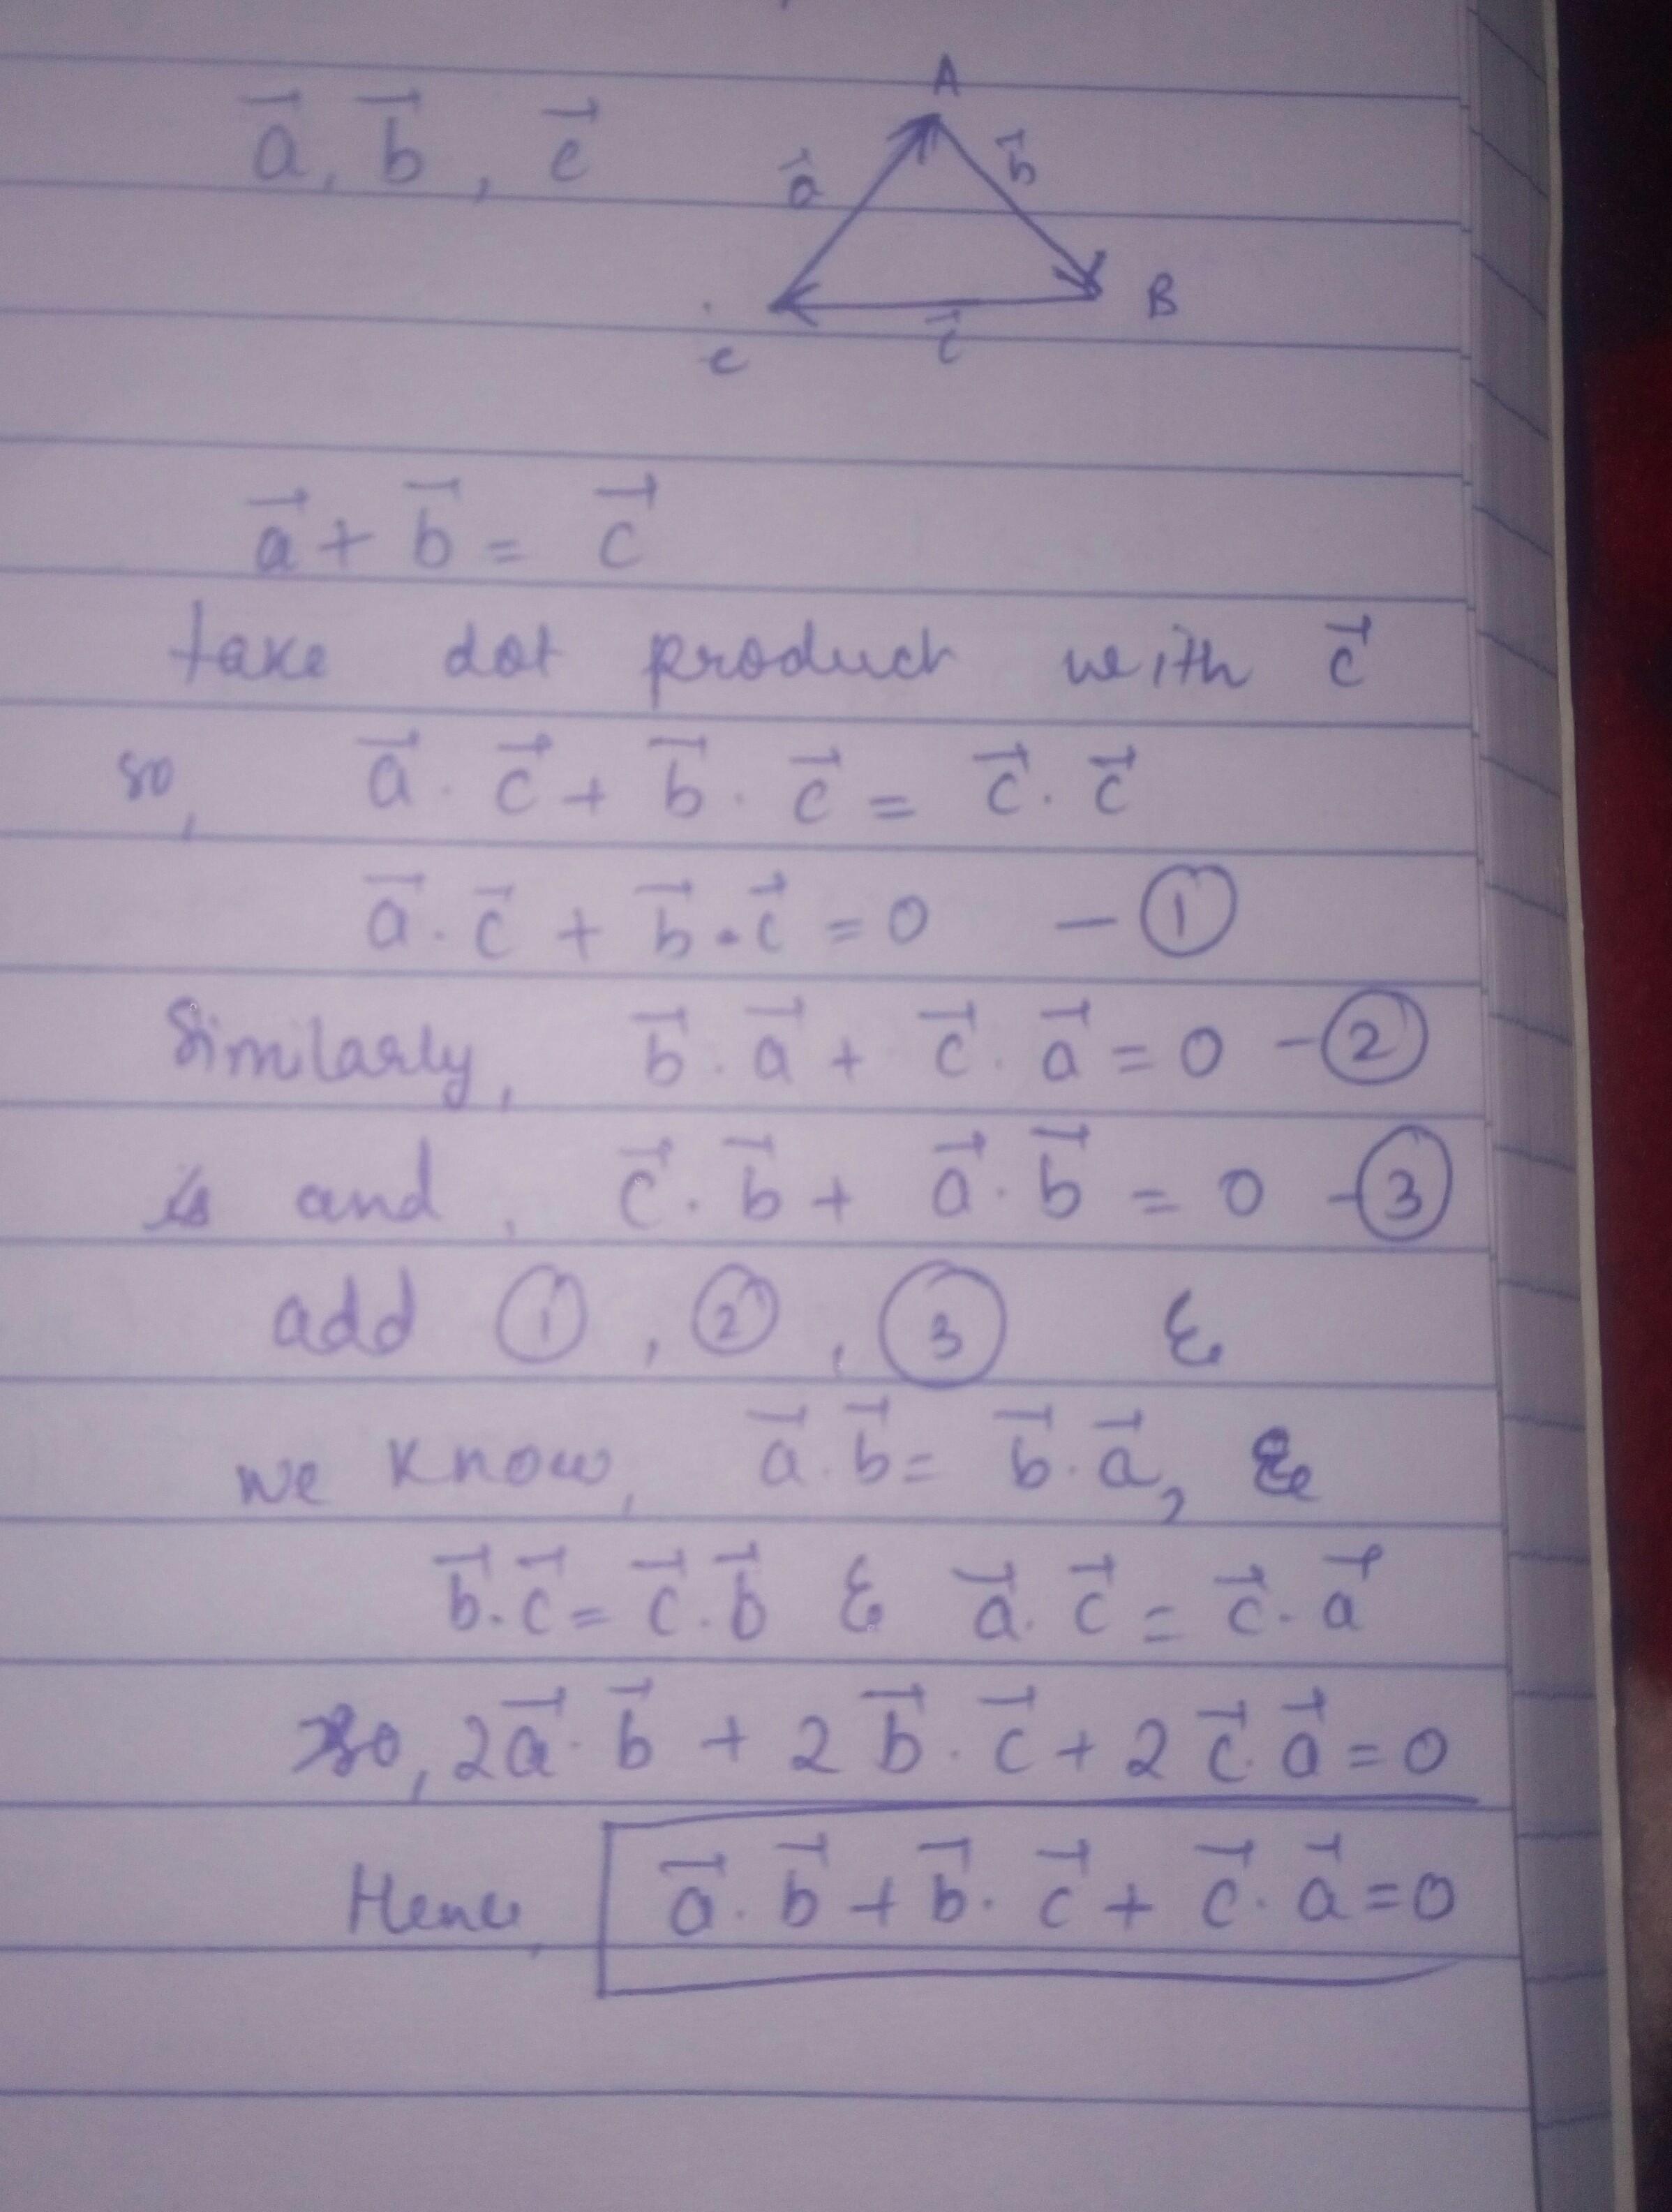 A
a⃗, b⃗, c⃗
a⃗ b⃗
B
c c⃗
a⃗ + b⃗ = c⃗
take dot product with c⃗
so, a⃗ . c⃗ + b⃗ . c⃗ = c⃗ . c⃗
a⃗ . c⃗ + b⃗ . c⃗ = 0 - ①
Similarly, b⃗ . a⃗ + c⃗ . a⃗ = 0 - ②
and, c⃗ . b⃗ + a⃗ . b⃗ = 0 - ③
add ①, ②, ③ &
we know, a⃗ . b⃗ = b⃗ . a⃗, &
b⃗ . c⃗ = c⃗ . b⃗ & a⃗ . c⃗ = c⃗ . a⃗
so, 2a⃗ . b⃗ + 2b⃗ . c⃗ + 2c⃗ . a⃗ = 0
Hence, a⃗ . b⃗ + b⃗ . c⃗ + c⃗ . a⃗ = 0